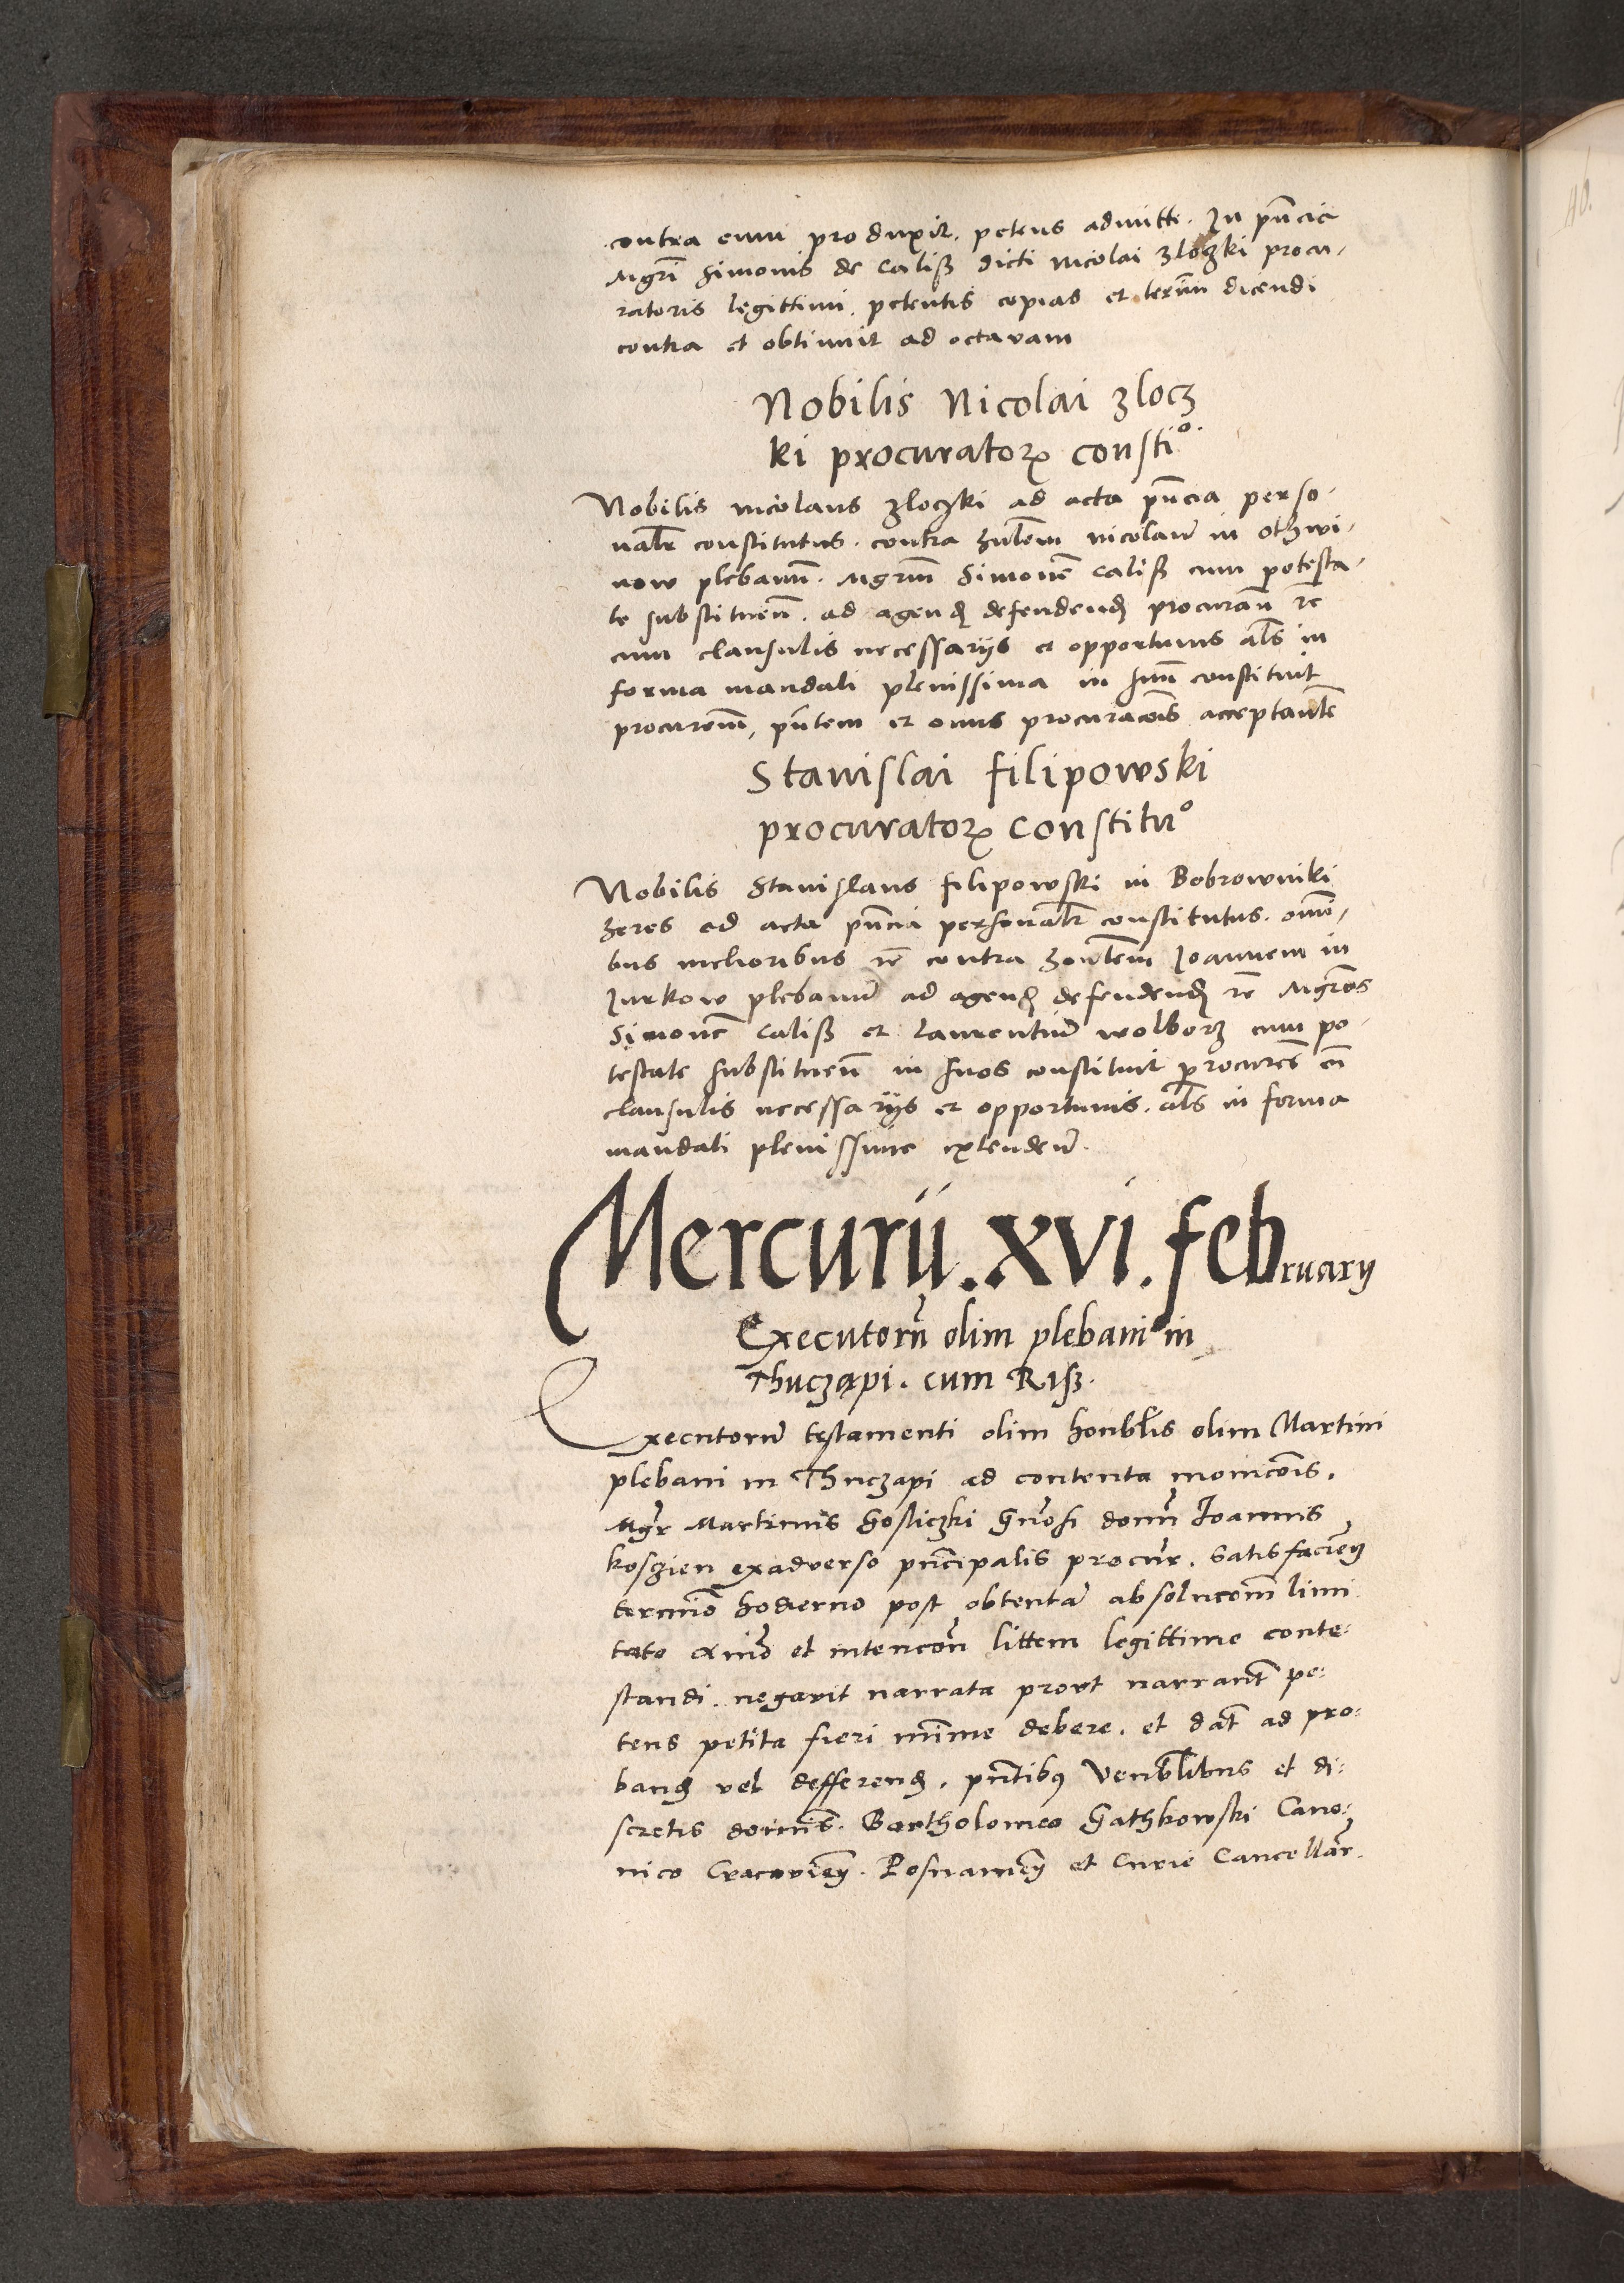 contra eum produxit. petens admitti. In pñcia
Mgrí Simonis de Caliß dicti Nicolai Zloczki procu-
ratoris legittimi. petentis copias et termñ dicendi
contra et obtinuit ad octavam
Nobilis Nicolai Zlocz
ki procurator consti°.
Nobilis Nicolaus Zloczki ad acta pñcia perso-
nalr constitutus. contra hnlem Nicolaũ in Othwi-
now plebanũ. Mgrm Simonẽ Caliß cum potesta-
te substituen̄. ad agend defendend procuran̄ rc
cum clausulis necessariis et opportunis als in
forma mandati plenissima in suũ constituit
procurem̄, pñtem et onus procuracõis acceptantẽ
Stanislai filipowski
procurator constitu°
Nobilis Stanislaus filipowski in Bobrowniki
heres ad acta pñcia personalr constitutus. omi-
bus melioribus rc contra honlem Joannem in
Jurkow plebanũ ad agend defendend rc Mgros
Simonẽ Caliß et Laurentiũ Wolborz cum po-
testate substituen̄ in suos constituit procures cũ
clausulis necessariis et opportunis. als in forma
mandati plenissime extenden̄.
Mercurii . xvi . february
Executorũ olim plebani in
Thuczapi. cum Riß.
Executorũ testamenti olim honblis olim Martini
plebani in Thuczapi ad contenta monicõis.
Mgr Martinus Gosliczki Gñosi domñ Joannis
Koszien exadverso pñcipalis procur. satisfacieñ
termĩo hodierno post obtentã absolucõm limi
tato et intencõñ littem legittime conte:
standi. negavit narrata prout narrant̃ pe:
tens petita fieri minime debere. et dat̃ ad pro:
band vel defferend. pñtibus Venblibus et di:
scretis domĩs. Bartholomeo Gathkowski Cano:
nico Cracovieñ. Posnanieñ et Curie Cancellar̃.